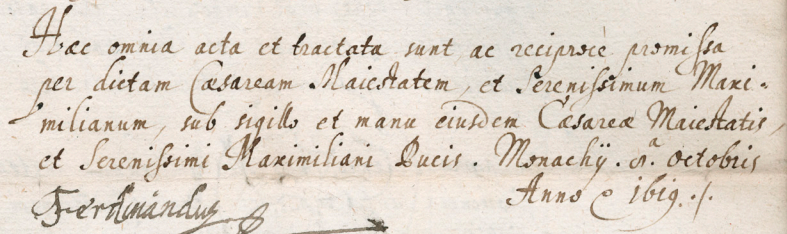 Hæc omnia acta et tractata sunt, ac reciprocè promissa
per dictam Cæsaream Maiestatem, et Serenissimum Maxi-
milianum, sub sigillo et manu eiusdem Cæsareæ Maiestatis,
et Serenissimi Maximiliani Ducis. Monachÿ. 8.ª Octobris
Anno 1619./.
Ferdinandus